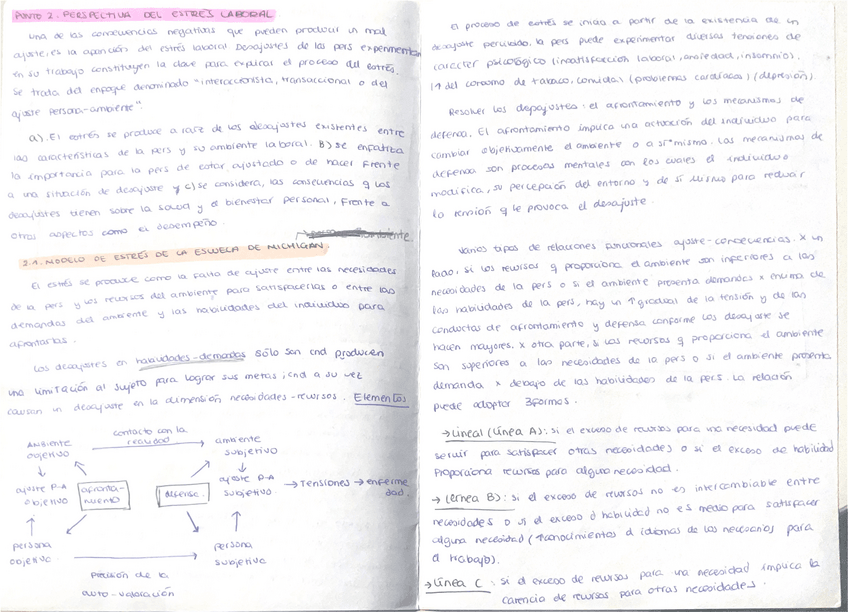 PUNTO 2. PERSPECTIVA DEL ESTRÉS LABORAL
Una de las consecuencias negativas que pueden producir un mal
ajuste, es la aparición del estrés laboral. Desajustes de las pers experimentan
en su trabajo constituyen la clave para explicar el proceso del estrés.
Se trata del enfoque denominado "interaccionista, transaccional o del
ajuste persona-ambiente"
a). El estrés se produce a raíz de los desajustes existentes entre
las características de la pers y su ambiente laboral. B) se enfatiza
la importancia para la pers de estar ajustado o de hacer frente
a una situación de desajuste y c) se considera, las consecuencias q los
desajustes tienen sobre la salud y el bienestar personal, frente a
otros aspectos como el desempeño.
ambiente.
2.1. MODELO DE ESTRÉS DE LA ESCUELA DE MICHIGAN.
El estrés se produce como la falta de ajuste entre las necesidades
de la pers y los recursos del ambiente para satisfacerlas o entre las
demandas del ambiente y las habilidades del individuo para
afrontarlas.
Los desajustes en habilidades-demandas sólo son cnd producen
una limitación al sujeto para lograr sus metas, cnd a su vez
causan un desajuste en la dimensión necesidades-recursos. Elementos
Ambiente objetivo
contacto con la realidad
ambiente subjetivo
ajuste P-A objetivo
afrontamiento
defensa
ajuste P-A subjetivo
→ Tensiones → enfermedad.
persona objetiva
persona subjetiva
Precisión de la auto-valoración
El proceso de estrés se inicia a partir de la existencia de un
desajuste percibido. la pers puede experimentar diversas tensiones de
carácter psicológico (insatisfacción laboral, ansiedad, insomnio).
(↑ del consumo de tabaco, comida) (problemas cardíacos) (depresión).
Resolver los desajustes: el afrontamiento y los mecanismos de
defensa. El afrontamiento implica una activación del individuo para
cambiar objetivamente el ambiente o a sí mismo. Los mecanismos de
defensa son procesos mentales con los cuales el individuo
modifica, su percepción del entorno y de sí mismo para reducir
la tensión q le provoca el desajuste.
Varios tipos de relaciones funcionales ajuste-consecuencias. x un
lado, si los recursos q proporciona el ambiente son inferiores a las
necesidades de la pers o si el ambiente presenta demandas x encima de
las habilidades de la pers, hay un ↑ gradual de la tensión y de las
conductas de afrontamiento y defensa conforme los desajuste se
hacen mayores. x otra parte, si los recursos q proporciona el ambiente
son superiores a las necesidades de la pers o si el ambiente presenta
demanda x debajo de las habilidades de la pers. La relación
puede adoptar 3 formas.
→ Lineal (línea A): si el exceso de recursos para una necesidad puede
servir para satisfacer otras necesidades o si el exceso de habilidad
Proporciona recursos para alguna necesidad.
→ (línea B): si el exceso de recursos no es intercambiable entre
necesidades o si el exceso d habilidad no es medio para satisfacer
alguna necesidad (↑conocimientos d idiomas de los necesarios para
el trabajo).
→ línea C: si el exceso de recursos para una necesidad implica la
carencia de recursos para otras necesidades.